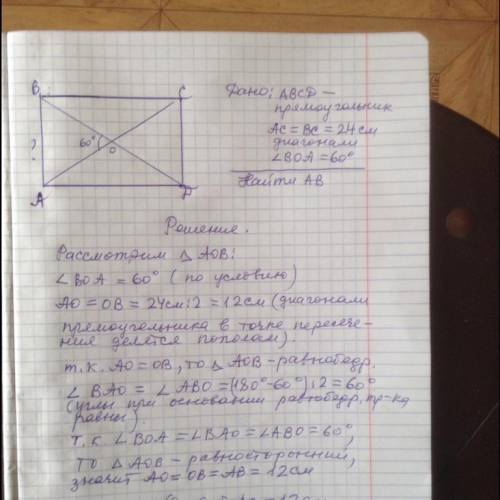 B C
60°
O
?
A D
Дано: ABCD —
прямоугольник
AC = BC = 24 см
диагонали
∠BOA = 60°
Найти AB
Решение.
Рассмотрим △ AOB:
∠BOA = 60° (по условию)
AO = OB = 24см:2 = 12см (диагонали
прямоугольника в точке пересече-
ния делятся пополам).
т.к. AO = OB, то △ AOB - равнобедр.
∠ BAO = ∠ABO = (180°-60°):2 = 60°
(углы при основании равнобедр. тр-ка
равны).
Т.к ∠BOA = ∠BAO = ∠ABO = 60°,
то △ AOB - равносторонний,
значит AO = OB = AB = 12см